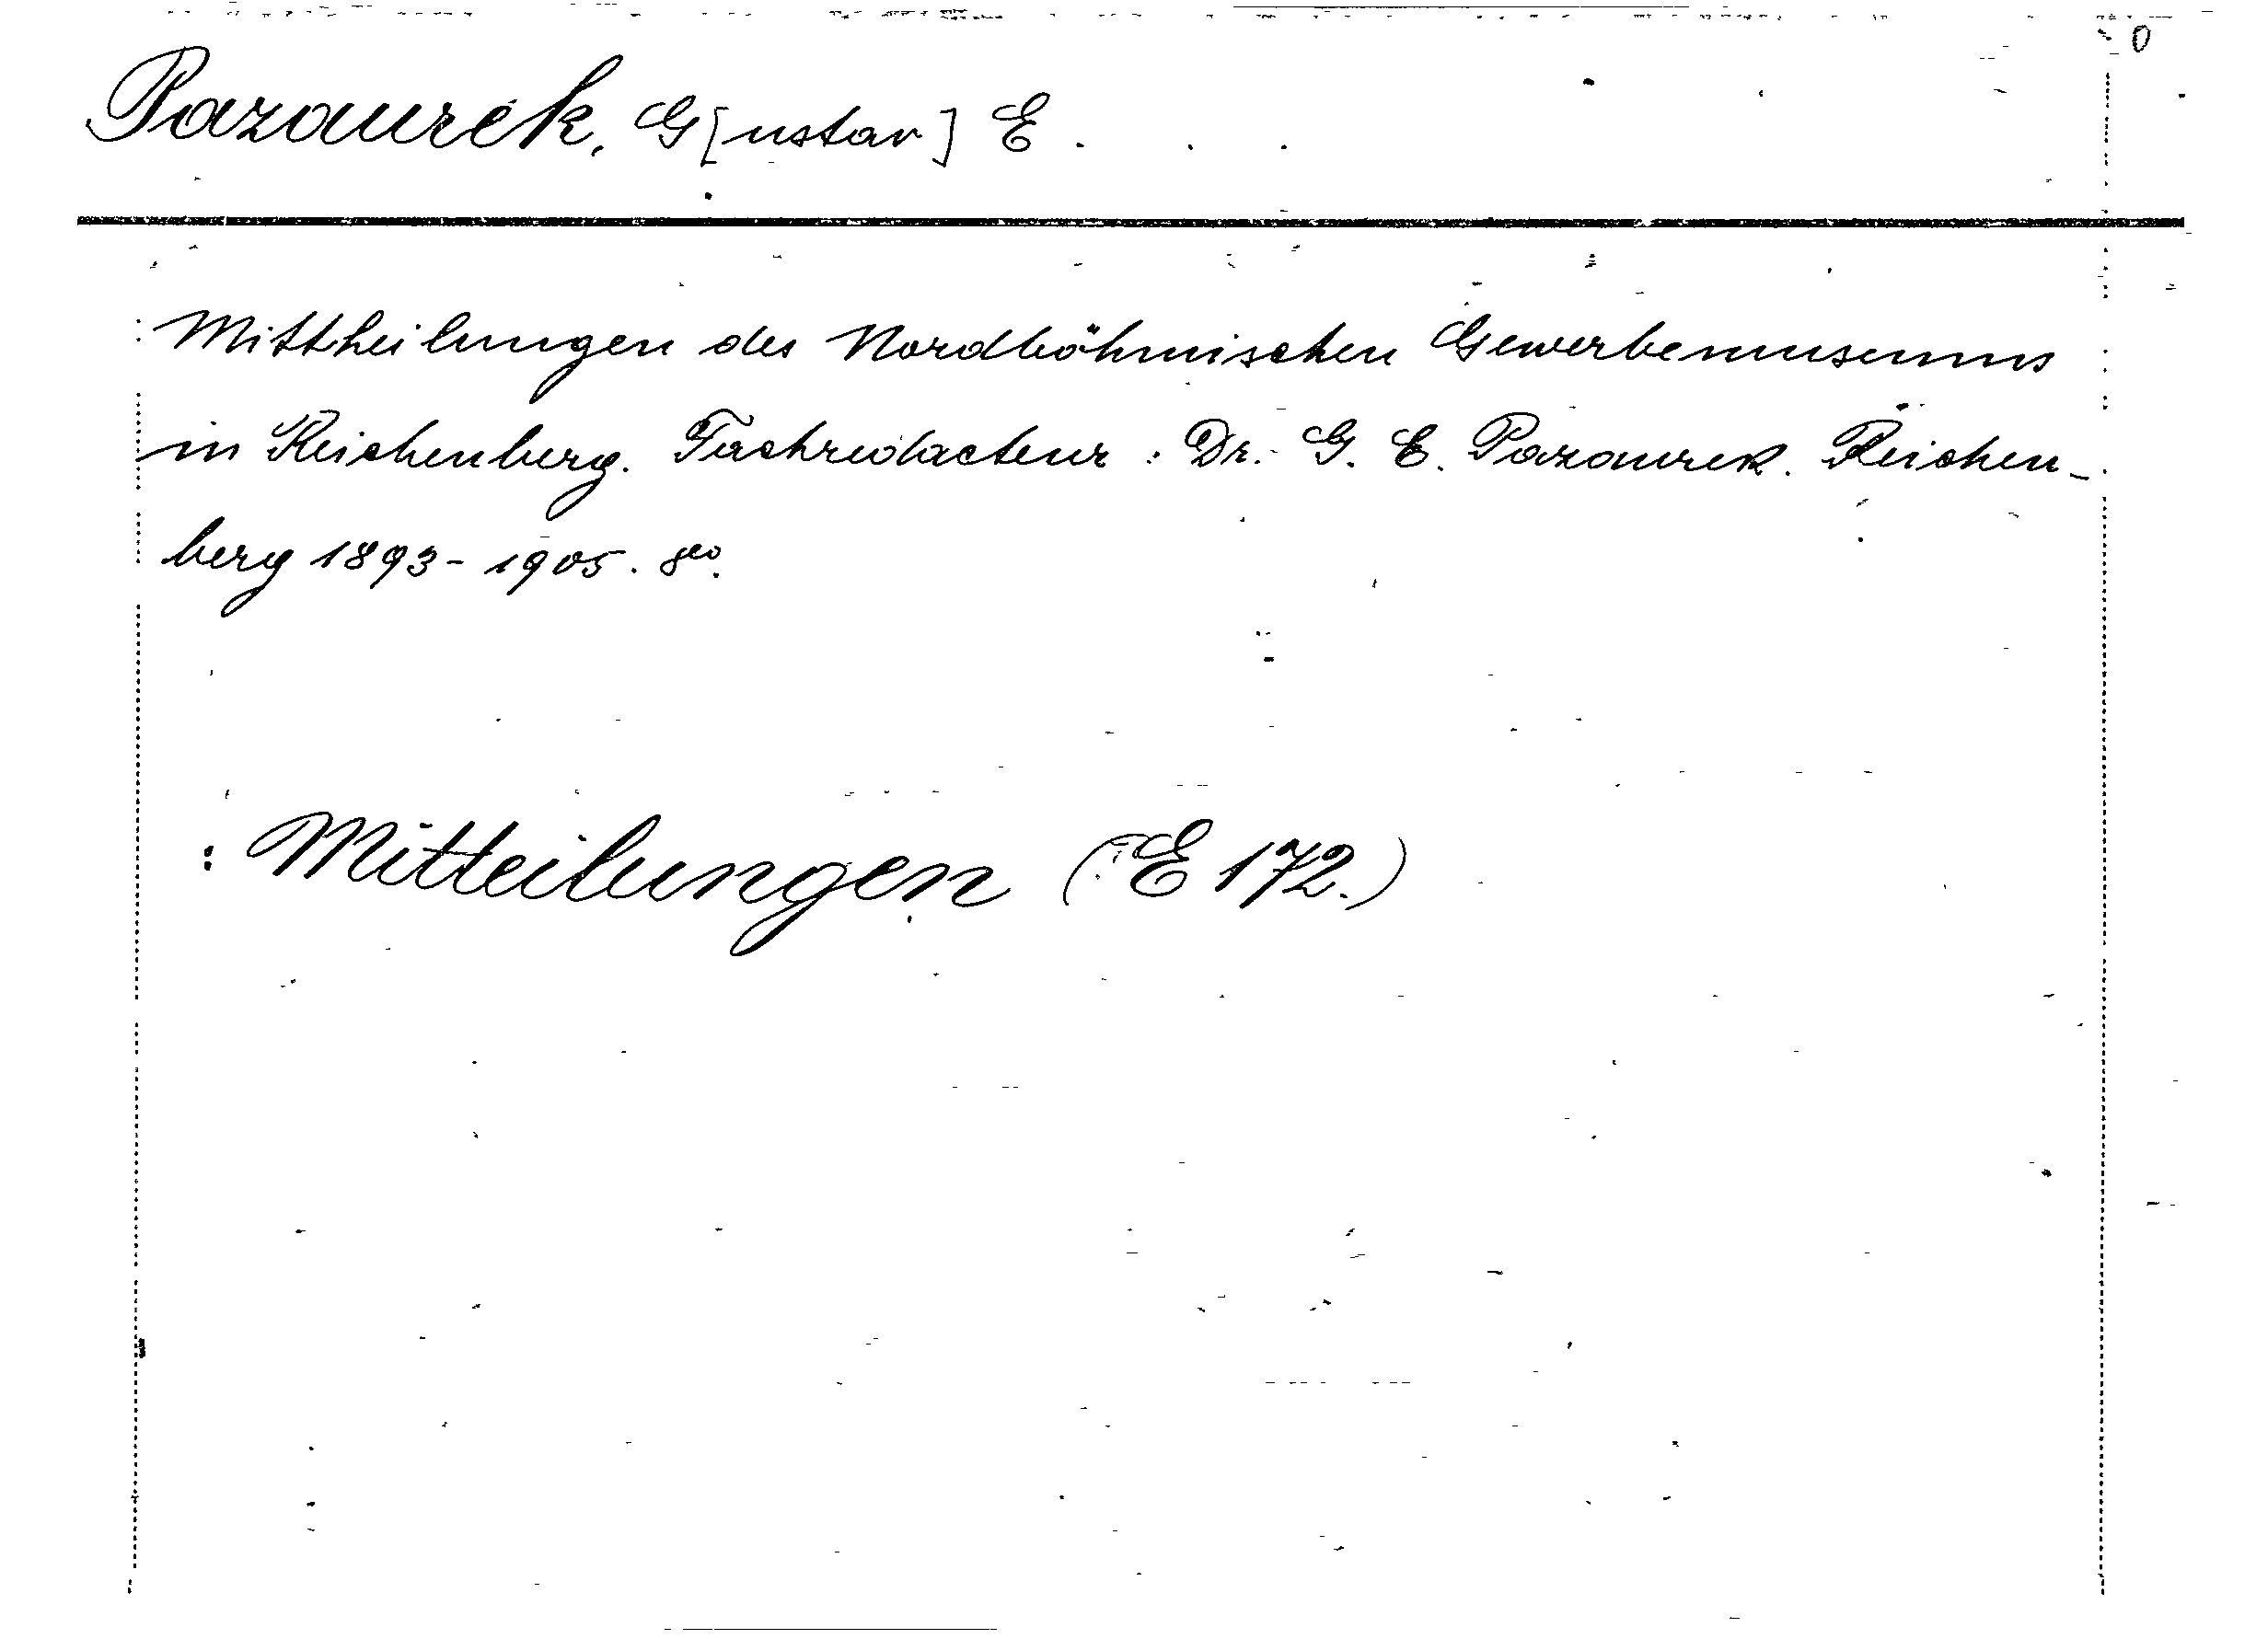 0
Pazaurek, G[ustav] E.
Mittheilungen des Nordböhmischen Gewerbemuseums
in Reichenberg. Fachredacteur: Dr. G. E. Pazaurek. Reichen-
berg 1893-1905. 8vo.
: Mitteilungen (E 172.)